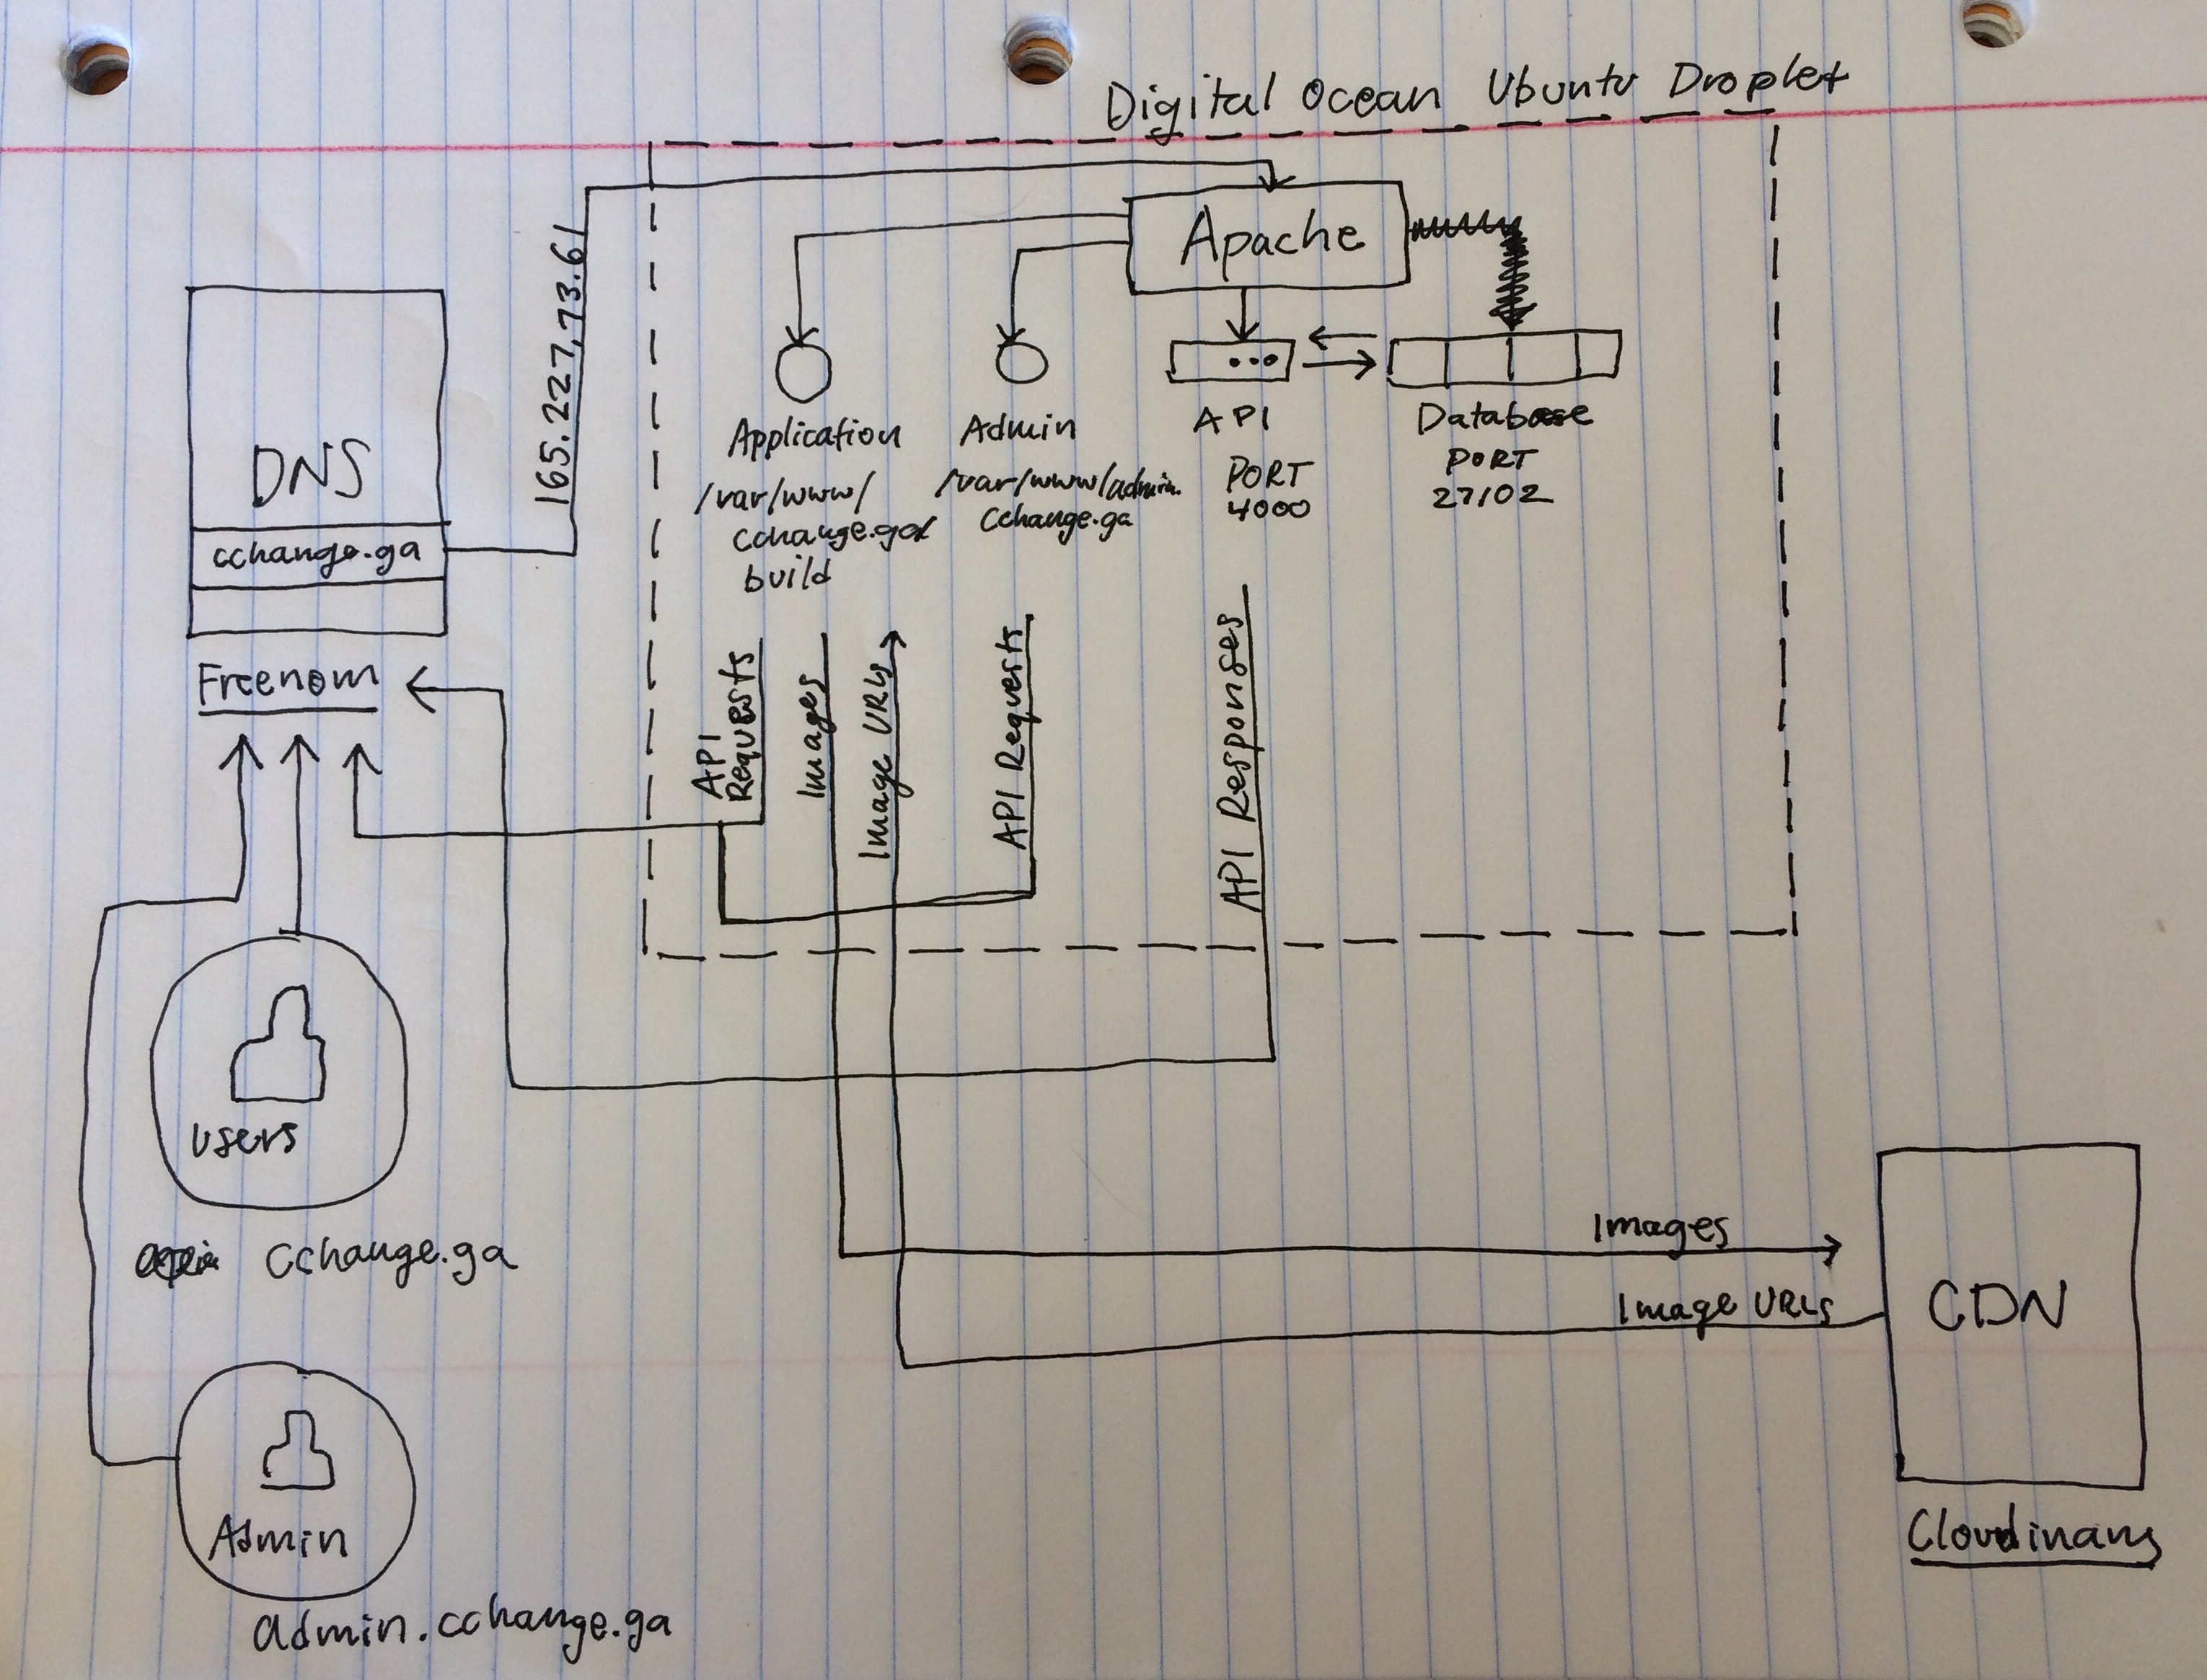 Digital Ocean Ubuntu Droplet
Apache
165.227.73.61
DNS
cchange.ga
Freenom
Application
/var/www/
cchange.ga/
build
Admin
/var/www/admin.
cchange.ga
API
PORT
4000
Database
PORT
27102
API
Requests
Images
Image URLs
API Requests
API Responses
Users
cchange.ga
Admin
admin.cchange.ga
Images
Image URLs
CDN
Cloudinary